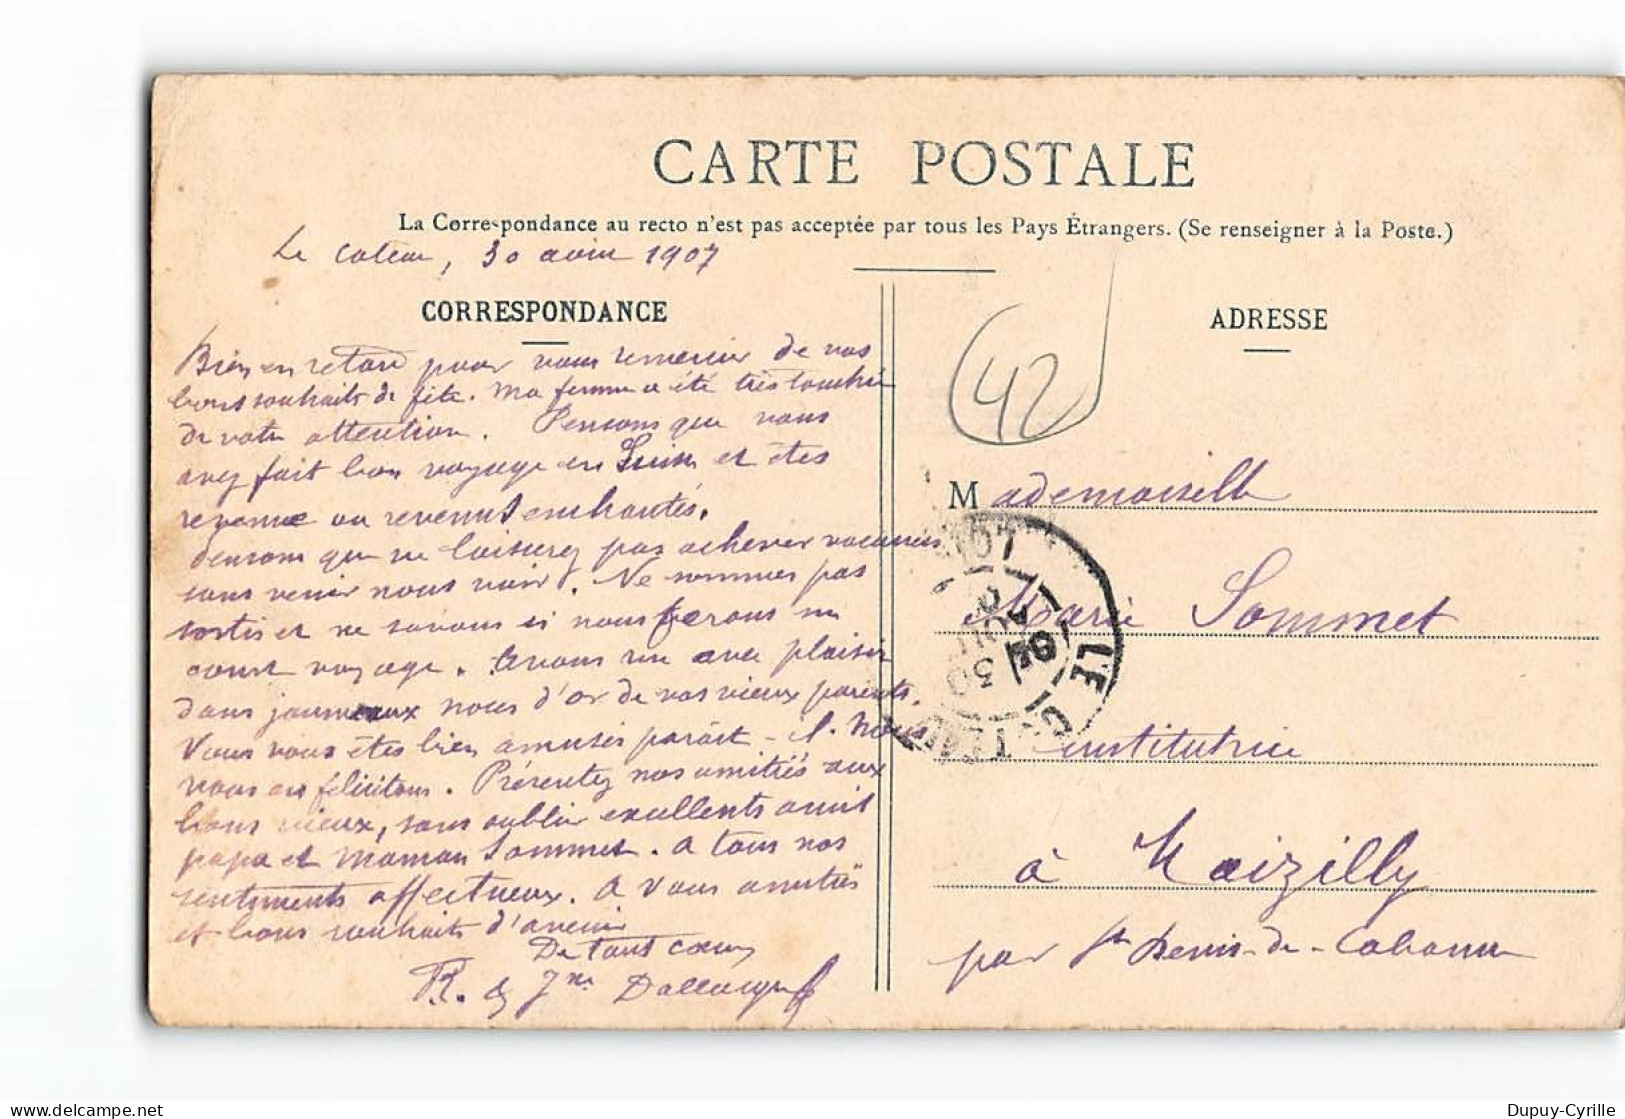 CARTE POSTALE
La Correspondance au recto n'est pas acceptée par tous les Pays Étrangers. (Se renseigner à la Poste.)
Le Coteau, 30 1907
CORRESPONDANCE
ADRESSE
42
Bien en retard pour vous remercier de vos
bons souhaits de fête. Ma femme a été très touchée
de votre attention. Pensons que vous
avez fait bon voyage en Suisse et êtes
revenue ou revenus enchantés.
Pensons que ne laisserez pas achever vacances
sans venir nous voir. Ne sommes pas
sortis et ne savons si nous ferons un
court voyage. Avons vu avec plaisir
dans journeaux noces d'or de vos vieux parents.
Vous vous êtes bien amusés paraît-il. Nous
vous en félicitons. Présentez nos amitiés aux
bons vieux, sans oublier excellents amis
papa et maman Sommet. A tous nos
sentiments affectueux. A vous amitiés
et bons souhaits d'avenir
De tout cœur
R. & Jne
Mademoiselle
Marie Sommet
institutrice
à Maizilly
par St Denis-de-Cabanne
LE COTEAU
30
07
LOIRE
Dupuy-Cyrille